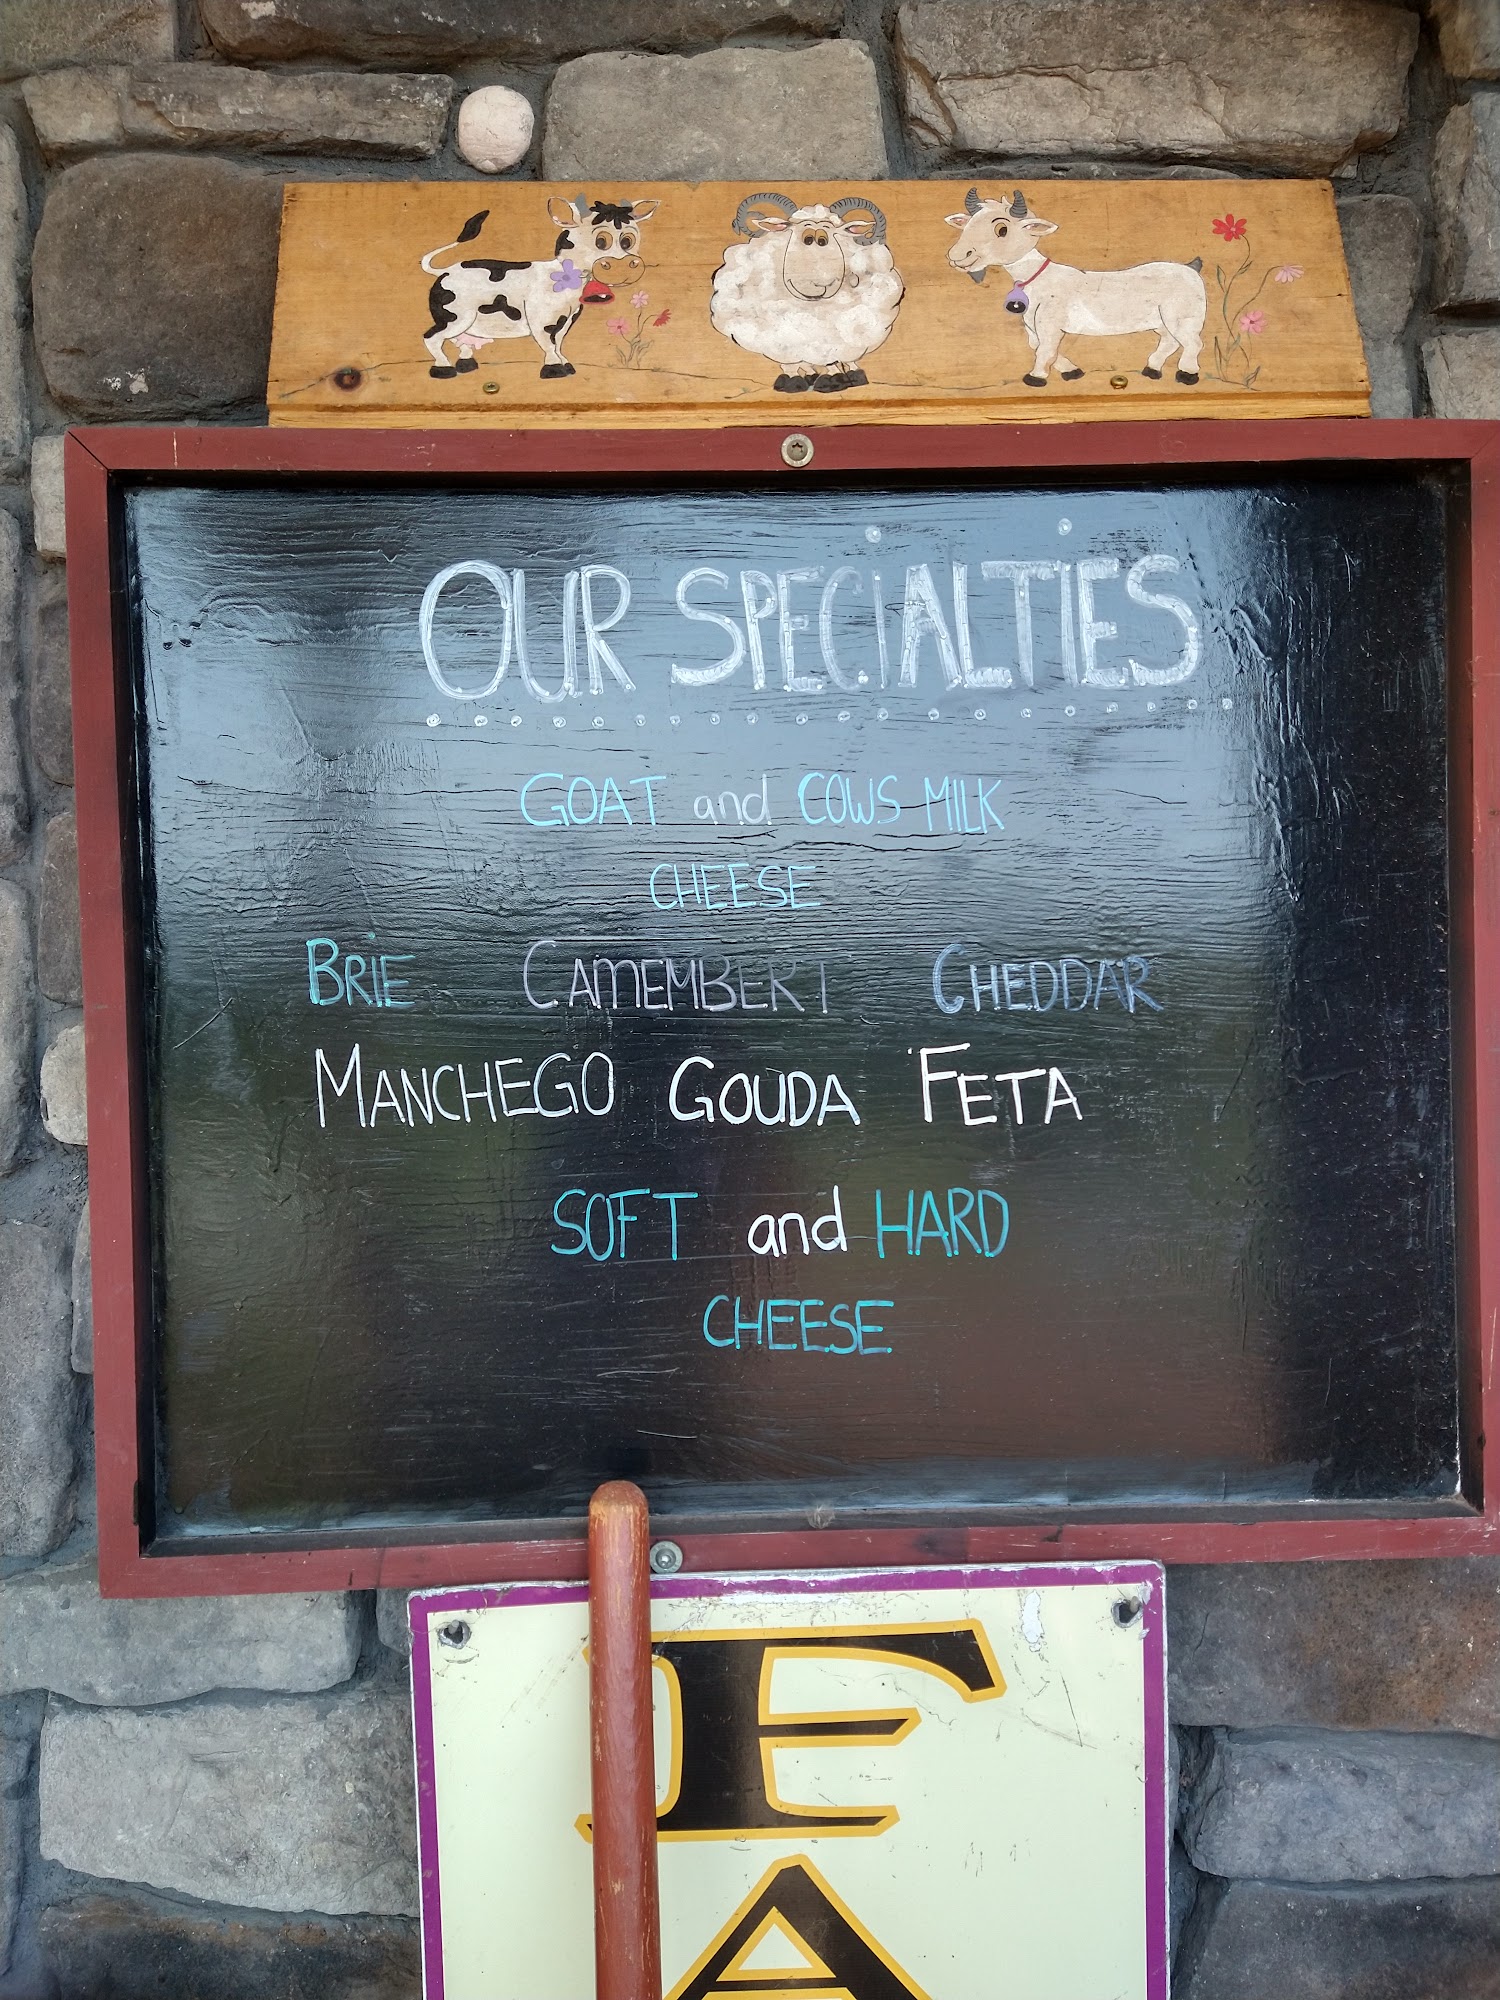 OUR SPECiALTiES
GOAT and COWS MILK
CHEESE
BRIE CAMEMBERT CHEDDAR
MANCHEGO GOUDA FETA
SOFT and HARD
CHEESE
F
A